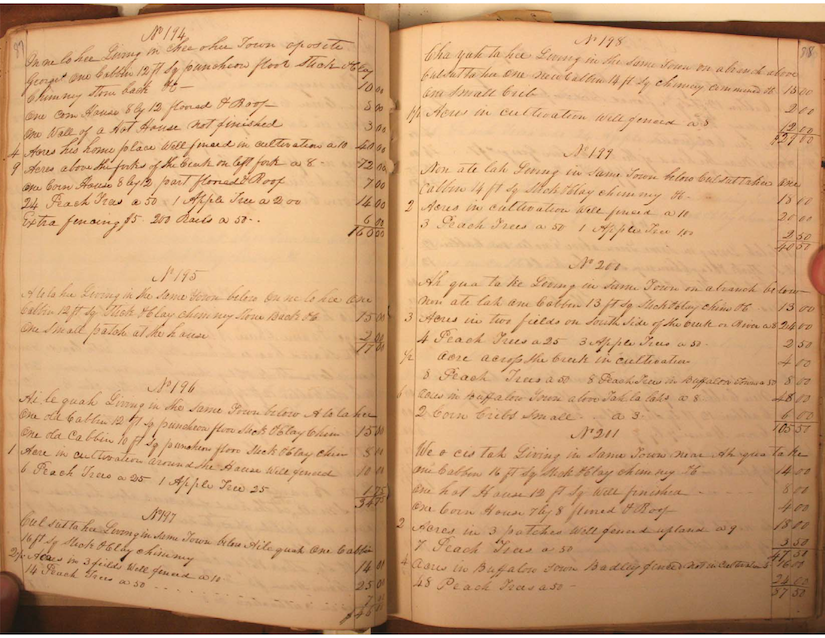 No 194
Living in Chee o hee Town oposite
George's one Cabbin 12 ft Sq puncheon floor Stick & Clay
Chimney Stone back &c 10 00
one corn House 8 by 12 floored & Roof 8 00
One Wall of a Hot House not finished 3 00
4 Acres his home place Well fenced in cultivation a 10 40 00
9 Acres above the forks of the Creek on left fork a 8 72 00
One Corn House 8 by 12 part floored & Roof 7 00
24 Peach Trees a 50 1 Apple Tree a 2 00 14 00
Extra fencing $5. 200 Rails a 50 6 00
160 00
No 195
A la la hee Living in the Same Town below One
Cabbin 12 ft Sq Stick & Clay chimney Stone Back &c 15 00
One Small patch at the house 2 00
17 00
No 196
Living in the Same Town below A la la hee
One old Cabbin 12 ft Sq puncheon floor Stick & Clay Chim 15 00
One old Cabbin 10 ft Sq puncheon floor Stick & Clay chim 8 00
1 Acre in cultivation around the House Well fenced 10 00
6 Peach Trees a 25 1 Apple Tree 25 1 75
34 75
No 197
Cul sut ta hee Living in Same Town below One Cabbin
16 ft Sq Stick & Clay chimney 14 00
2½ Acres in 3 fields Well fenced a 10 25 00
14 Peach Trees a 50 7 00
$46 00
No 198 98
Cha yuh ta hee Living in the Same Town on a branch above
Cul sut ta hee One new Cabbin 14 ft Sq chimney 15 00
One Small Crib 2 00
1½ Acres in cultivation Well fenced a 8 12 00
$29 00
No 199
Non ate lah Living in Same Town below Cul sut ta hee One
Cabbin 14 ft Sq Stick & Clay chimney &c 18 00
2 Acres in cultivation Well fenced a 10 20 00
3 Peach Trees a 50 1 Apple Tree 100 2 50
40 50
No 200
Ah qua ta ke Living in Same Town on a branch below
Non ate lah One Cabbin 13 ft Sq Stick & Clay chim &c 13 00
3 Acres in two fields on South Side of the Creek or River a 8 24 00
4 Peach Trees a 25 3 Apple Trees a 50 2 50
½ acre across the Creek in cultivation 4 00
8 Peach Trees a 50 8 Peach Trees in Buffalow Town a 50 8 00
6 acres in Buffalow Town above a 8 48 00
2 Corn Cribs Small a 3 6 00
105 50
No 201
We o cis tah Living in Same Town near Ah qua ta ke
One Cabbin 16 ft Sq Stick & Clay chimney &c 14 00
One hot House 12 ft Sq Well finished 8 00
One Corn House 7 by 8 floored & Roof 4 00
2 Acres in 3 patches Well fenced upland a 9 18 00
7 Peach Trees a 50 3 50
47 50
4 Acres in Buffalow Town Badley fenced not in Cultivation 16 00
48 Peach Trees a 50 24 00
87 50